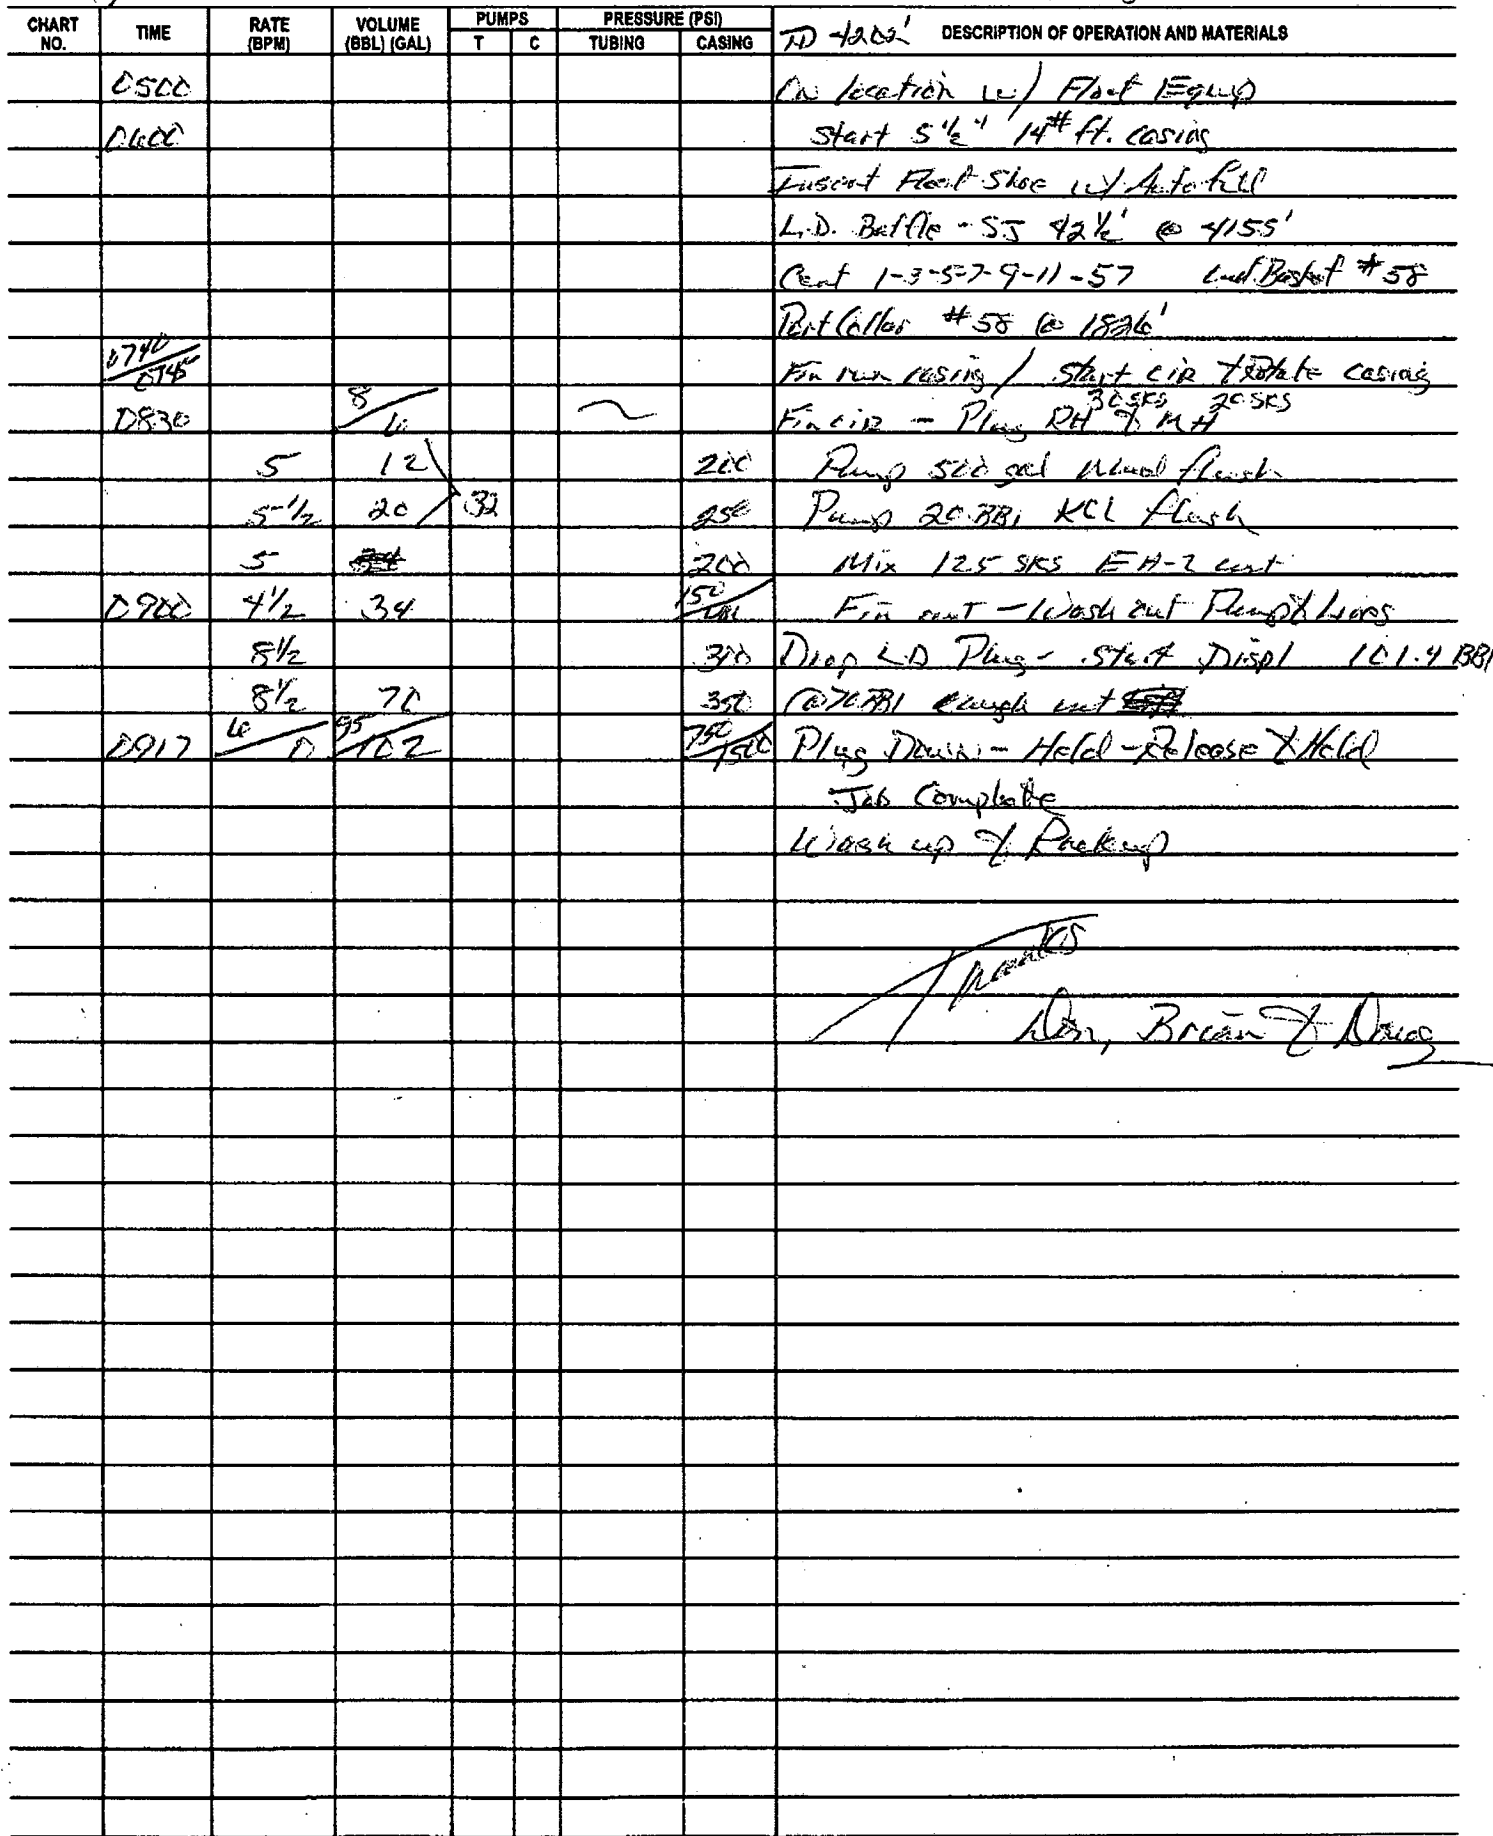 CHART NO. TIME RATE (BPM) VOLUME (BBL) (GAL) PUMPS T C PRESSURE (PSI) TUBING CASING TD 4202' DESCRIPTION OF OPERATION AND MATERIALS
0500 On location w/ Float Equip
0600 Start 5 1/2" 14# ft. casing
Insert Float Shoe w/ Auto fill
L.D. Baffle - SJ 42 1/2' @ 4155'
Cent 1-3-5-7-9-11-57 Basket #58
Port Collar #58 @ 1826'
0740/0745 Fin run casing / start cir & Rotate casing
0830 8/6 Fin cir - Plug RH 30 sks & MH 20 sks
5 12 200 Pump 500 gal Mud flush
5-1/2 20 32 250 Pump 20 BBl KCL flush
5 200 Mix 125 sks EA-2 cmt
0900 4 1/2 34 150 Fin cmt - Wash out Pump & Lines
8 1/2 300 Drop L.D Plug - Start Displ 101.4 BBl
8 1/2 70 350 @ 70 BBl caugh cmt
0917 6/0 95/102 750/1500 Plug Down - Held - Release & Held
Job Complete
Wash up & Rackup
Thanks
Don, Brian & Doug